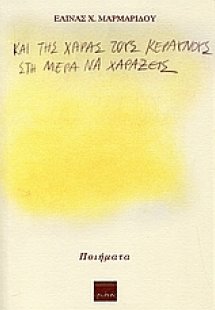 ΕΛΙΝΑΣ Χ. ΜΑΡΜΑΡΙΔΟΥ
ΚΑΙ ΤΗΣ ΧΑΡΑΣ ΤΟΥΣ ΚΕΡΑΥΝΟΥΣ
ΣΤΗ ΜΕΡΑ ΝΑ ΧΑΡΑΖΕΙΣ
Ποιήματα